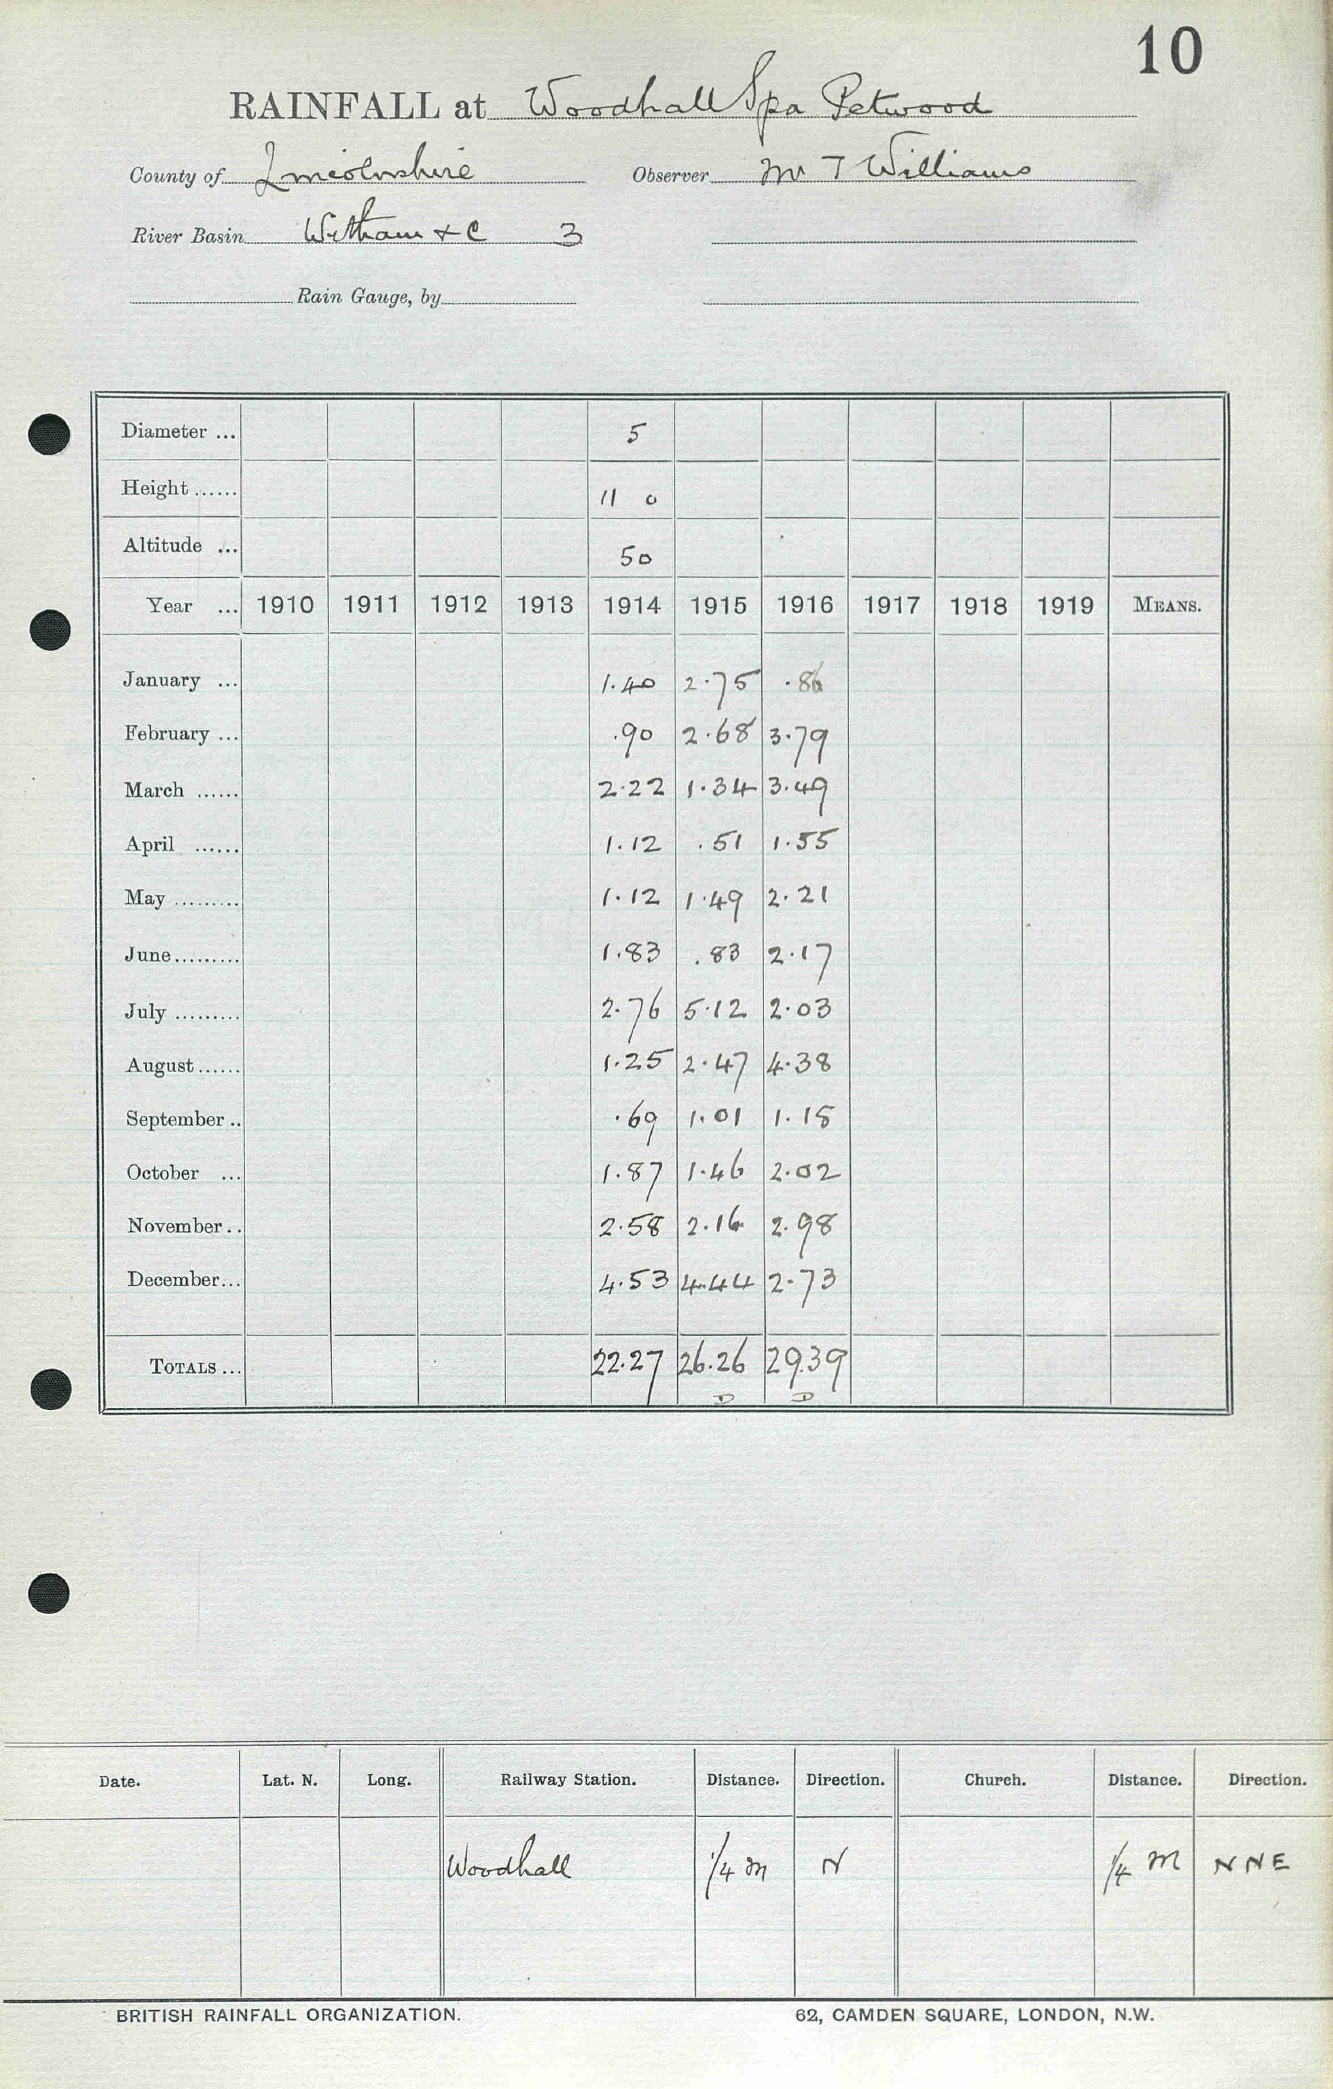 10
RAINFALL at Woodhall Spa Petwood
County of Lincolnshire Observer Mr T Williams
River Basin Witham & C 3
Rain Gauge, by
Diameter ... 5
Height ...... 11 0
Altitude ... 50
Year ... 1910 1911 1912 1913 1914 1915 1916 1917 1918 1919 MEANS.
January ... 1.40 2.75 .86
February ... .90 2.68 3.79
March ...... 2.22 1.34 3.49
April ...... 1.12 .51 1.55
May ......... 1.12 1.49 2.21
June ......... 1.83 .83 2.17
July ......... 2.76 5.12 2.03
August ...... 1.25 2.47 4.38
September .. .69 1.01 1.18
October ... 1.87 1.46 2.02
November .. 2.58 2.16 2.98
December ... 4.53 4.44 2.73
TOTALS ... 22.27 26.26 29.39
D D
Date. Lat. N. Long. Railway Station. Distance. Direction. Church. Distance. Direction.
Woodhall 1/4 m N 1/4 M NNE
BRITISH RAINFALL ORGANIZATION. 62, CAMDEN SQUARE, LONDON, N.W.